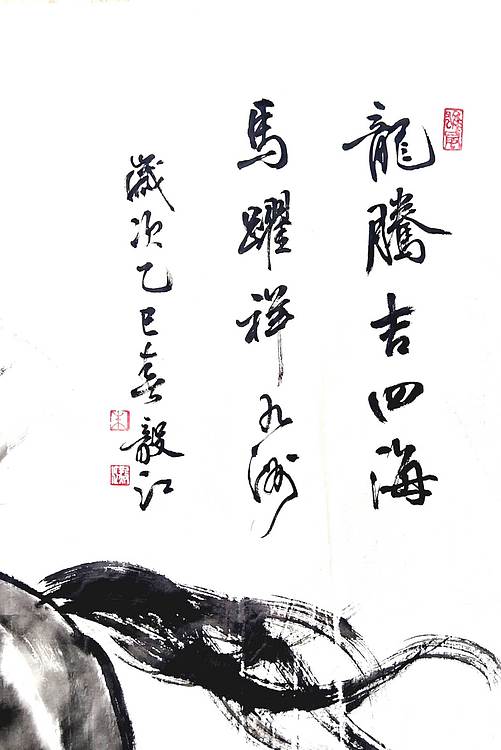 龍騰吉四海
馬躍祥九洲
歲次乙巳春毅江